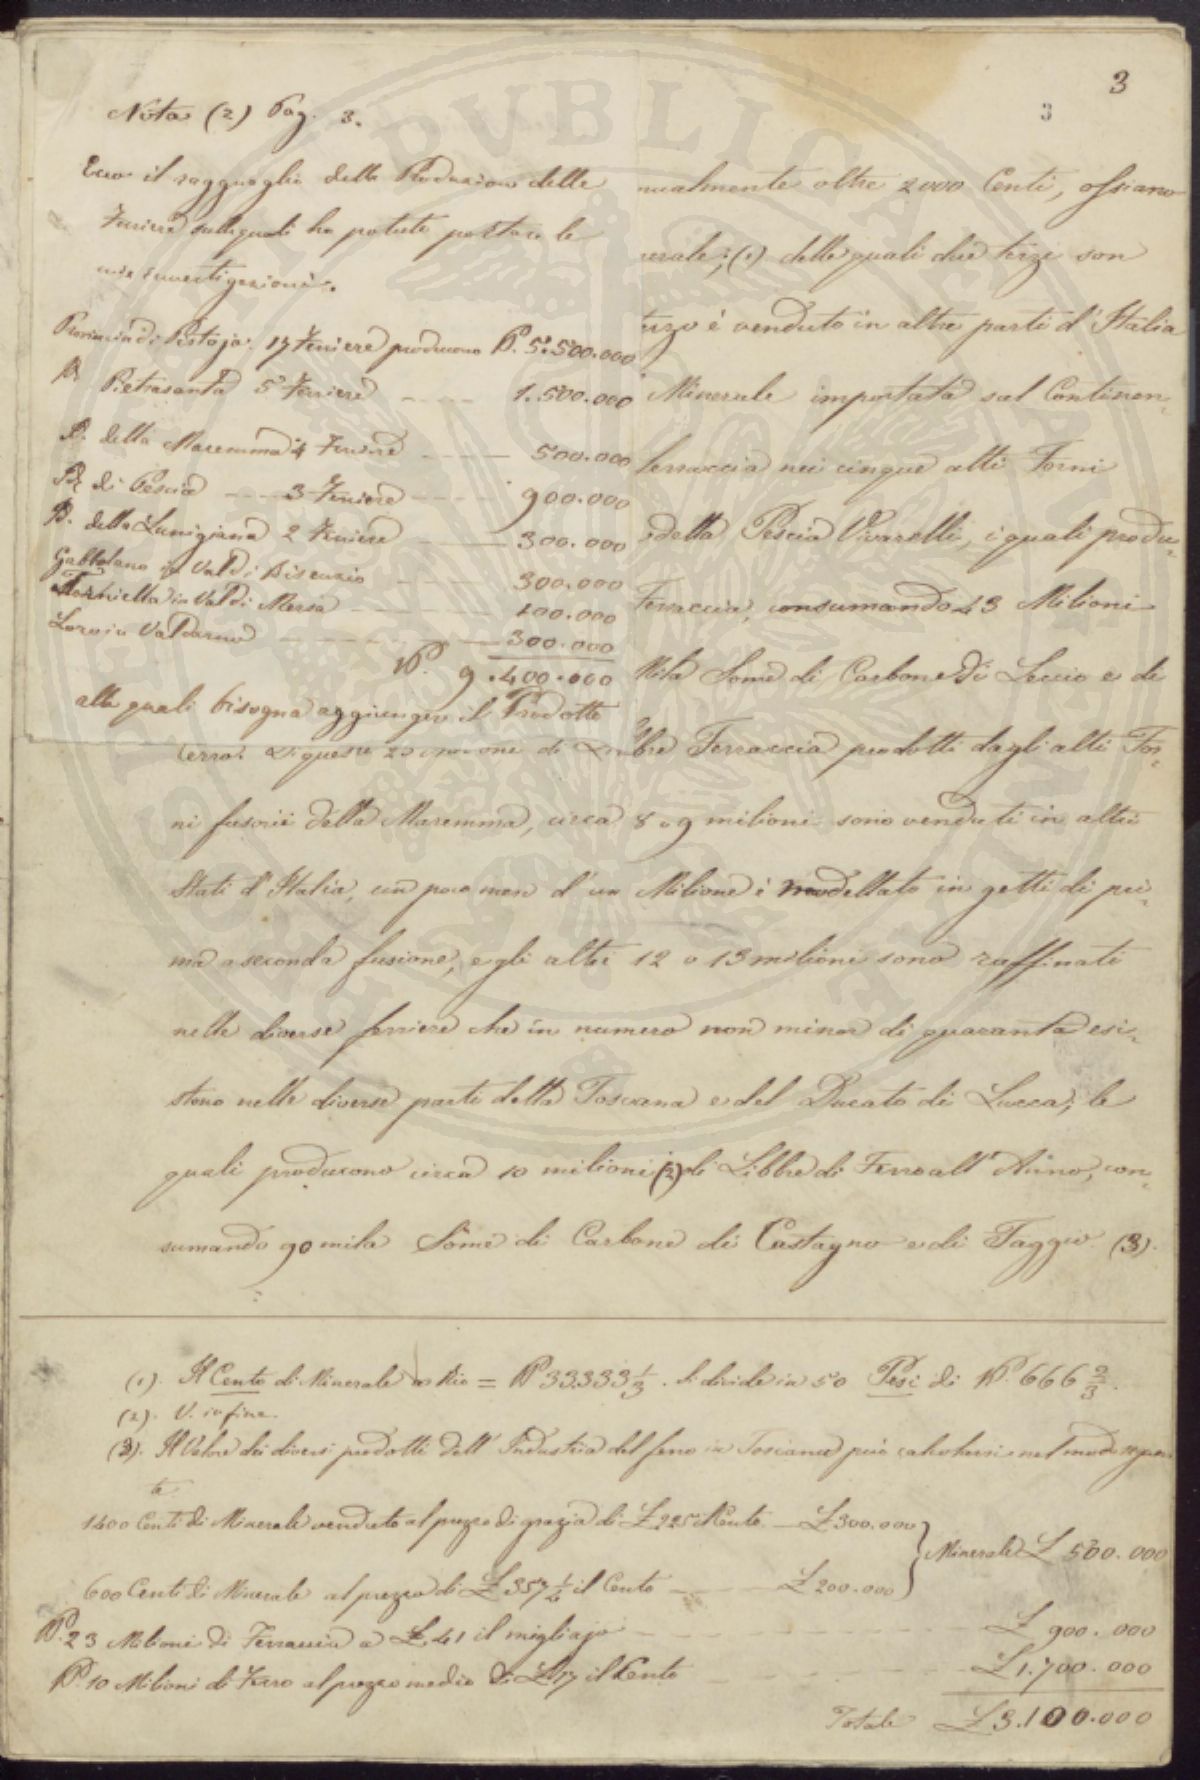 3
3
Nota (2) Pag. 3.
Ecco il ragguaglio della Produzione delle
Ferriere sulle quali ho potuto portare le
mie investigazioni:
Provincia di Pistoja: 17 Ferriere producono P. 5.500.000
P. Pietrasanta 5 Ferriere 1.500.000
P. della Maremma 4 Ferriere 500.000
P. di Pescia 3 Ferriere 900.000
P. della Lunigiana 2 Ferriere 300.000
Gabbolano in Val di Bisenzio 300.000
Torniella in Val di Mersa 100.000
Loro in Valdarno 300.000
P. 9.400.000
alle quali bisogna aggiungere il Prodotto
nualmente oltre 2000 Centi, ossiano
nerale; (1) delle quali due terzi son
terzo è venduto in altre parti d'Italia
Minerale importata sul Continen-
ferraccia nei cinque alti Forni
della Pescia Vivarelli, i quali produ-
Ferraccia, consumando 43 Milioni
Mila Some di Carbone di Leccio e di
cerro. Di queste 23 milioni di Libbre Ferraccia prodotti dagli alti For-
ni fusorii della Maremma, circa 8 o 9 milioni sono venduti in altri
Stati d'Italia, un poco men d'un Milione è modellato in getti di pri-
ma o seconda fusione, e gli altri 12 o 13 milioni sono raffinati
nelle diverse ferriere che in numero non minor di quaranta esi-
stono nelle diverse parti della Toscana e del Ducato di Lucca; le
quali producono circa 10 milioni (2) di Libbre di Ferro all'Anno, con-
sumando 90 mila Some di Carbone di Castagno e di Faggio. (3).
(1). Il Cento di Minerale a Rio = P 33333 1/3. Si divide in 50 Pesi di P. 666 2/3.
(2). V. in fine.
(3). Il Valore dei diversi prodotti dell'Industria del ferro in Toscana può calcolarsi nel modo seguen-
te
1400 Centi di Minerale venduto al prezzo di grazia di £ 225 il Cento £ 300.000
Minerale £ 500.000
600 Centi di Minerale al prezzo di £ 357 1/2 il Cento £ 200.000
P. 23 Milioni di Ferraccia a £. 41 il migliajo £ 900.000
P. 10 Milioni di Ferro al prezzo medio di £. 17 il Cento £ 1.700.000
Totale £ 3.100.000